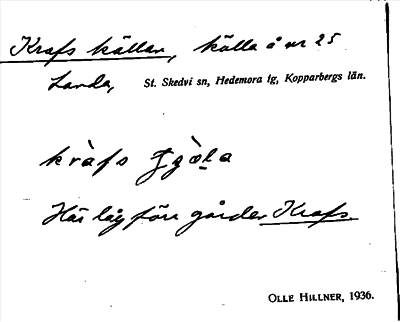 Krafs källan, källa å nr 25
Landa, St. Skedvi sn, Hedemora tg, Kopparbergs län.
kràfs
Här låg förr gården Krafs.
OLLE HILLNER, 1936.